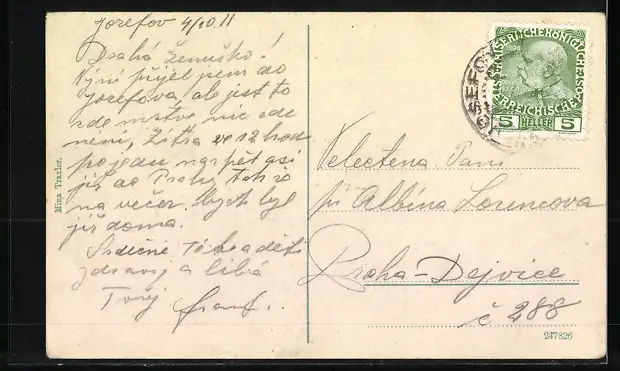 Josefov 4/10. 11
Drahá Ženuško!
Nyní přijel jsem do
Josefova, ale jest to
zde mrtvo nic zde
není, Zítra ve 12 hod
pojedu naspět asi
již do Prahy, tak že
na večer bych byl
již doma.
Srdečně Tě a děti
zdraví a líbá
Tvůj Frant.
Mina Traxler.
KAISERLICHE KÖNIGLICHE
ÖSTERREICHISCHE
5 HELLER 5
Velectěná Paní
pí Albína Lorencova
Praha-Dejvice
č 288
247826